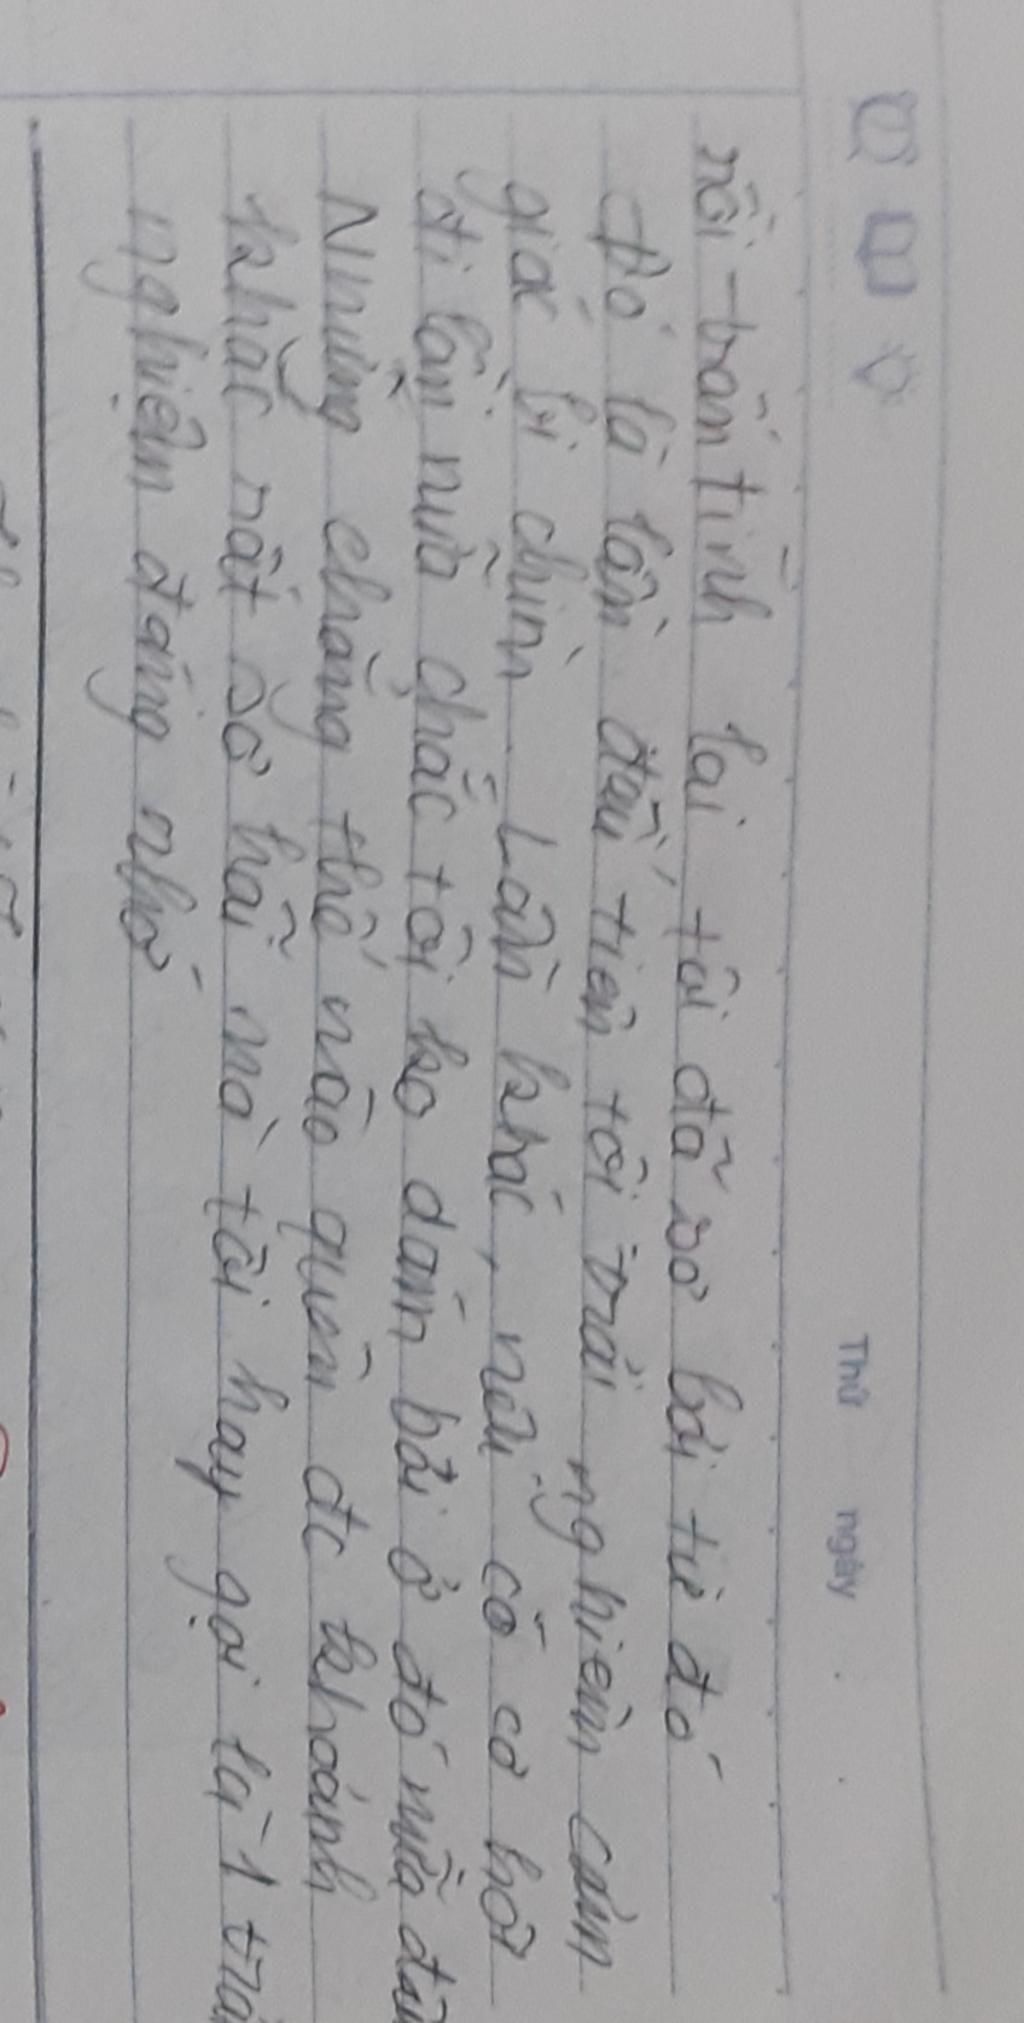 Thứ ngày
rồi - trấn tĩnh lại tôi đã sơ bơi từ đó
Đó là lần đầu tiên tôi trải nghiệm cảm
giác bị chìm. Lần khác, nếu có cơ hội
đi lần nữa chắc tôi ko dám bơi ở đó nữa đâu
Nhưng chẳng thể nào quên đc khoảnh
khắc rất sơ hãi mà tôi hay gọi là 1 trải
nghiệm đáng nhớ